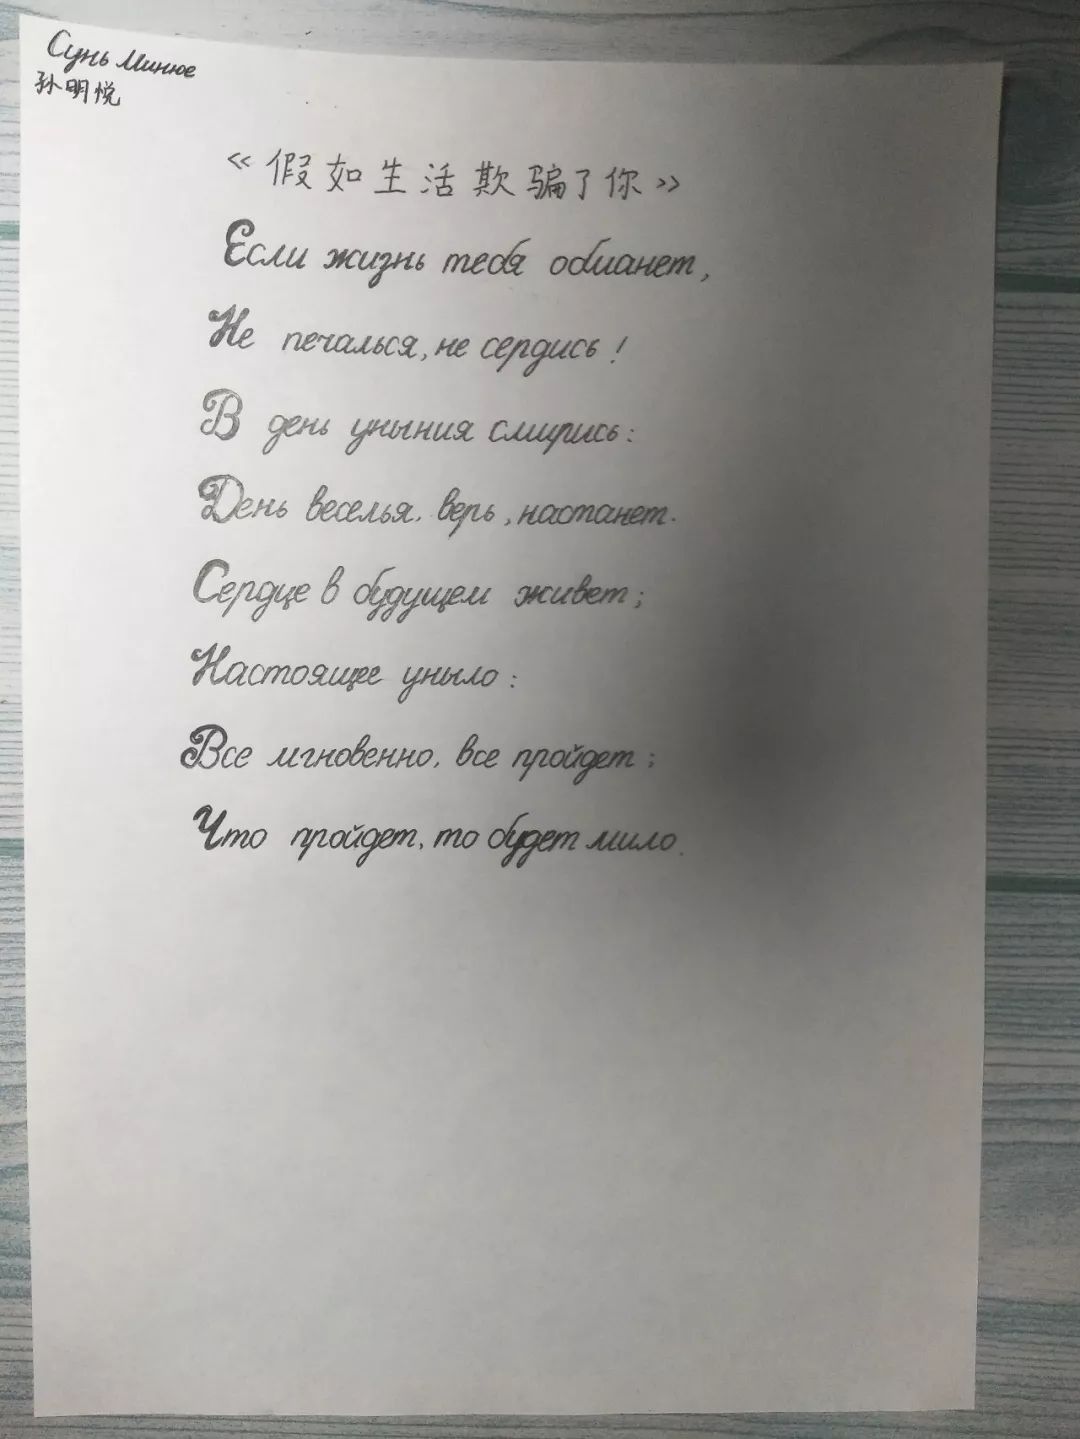 Сунь Минюе
孙明悦
《假如生活欺骗了你》
Если жизнь тебя обманет,
Не печалься, не сердись!
В день уныния смирись:
День веселья, верь, настанет.
Сердце в будущем живет;
Настоящее уныло:
Все мгновенно, все пройдет;
Что пройдет, то будет мило.